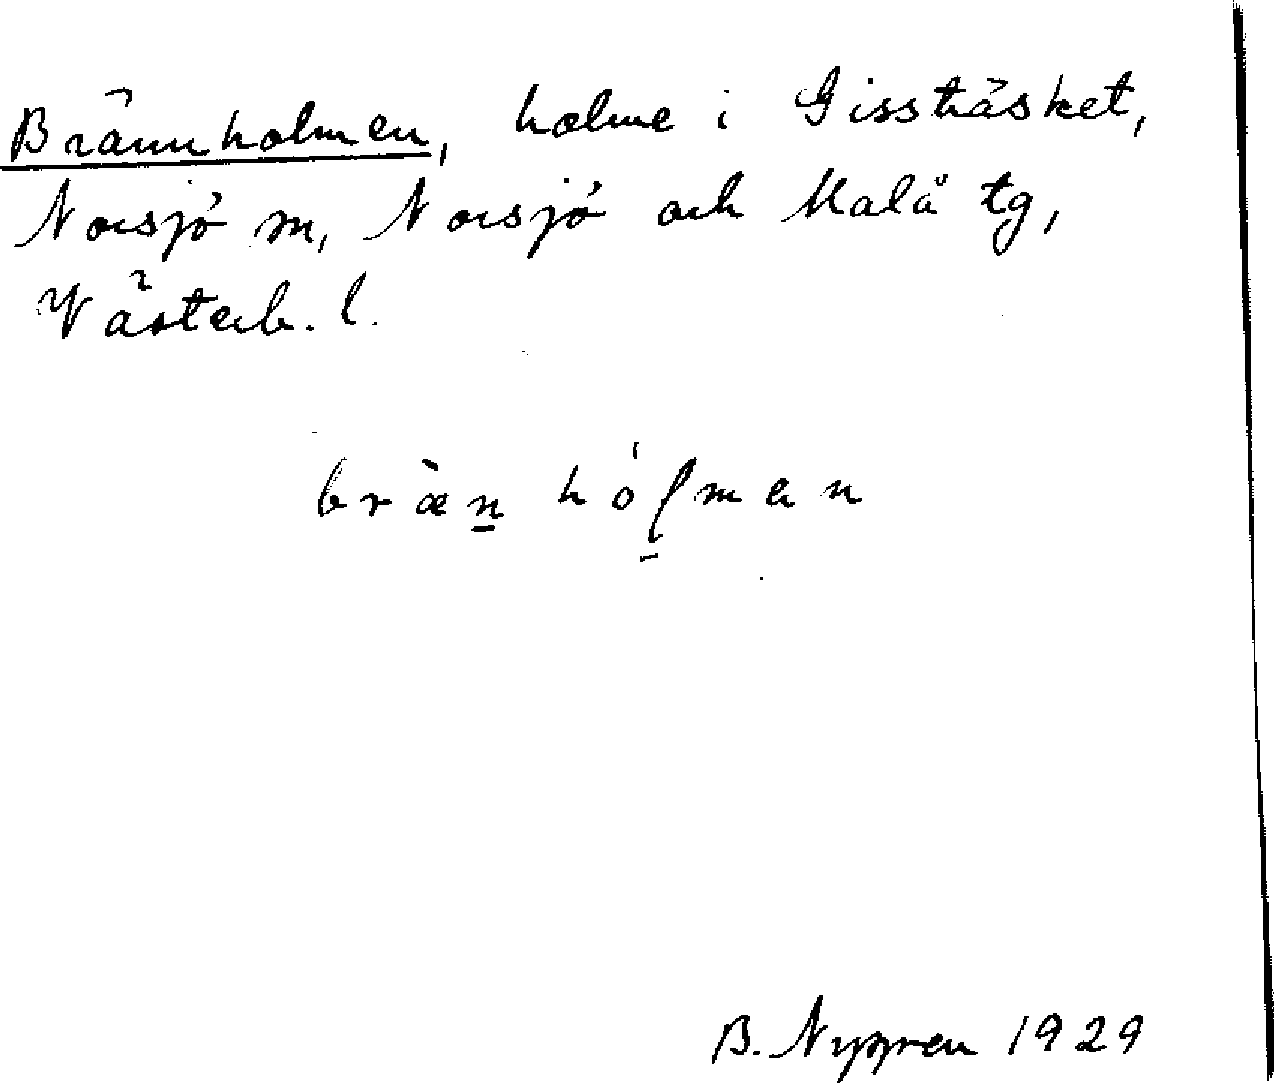 Brännholmen, holme i Gissträsket,
Norsjö sn, Norsjö och Malå tg,
Västerb. l.
bræ̀n̲ hólmen
B. Nygren 1929